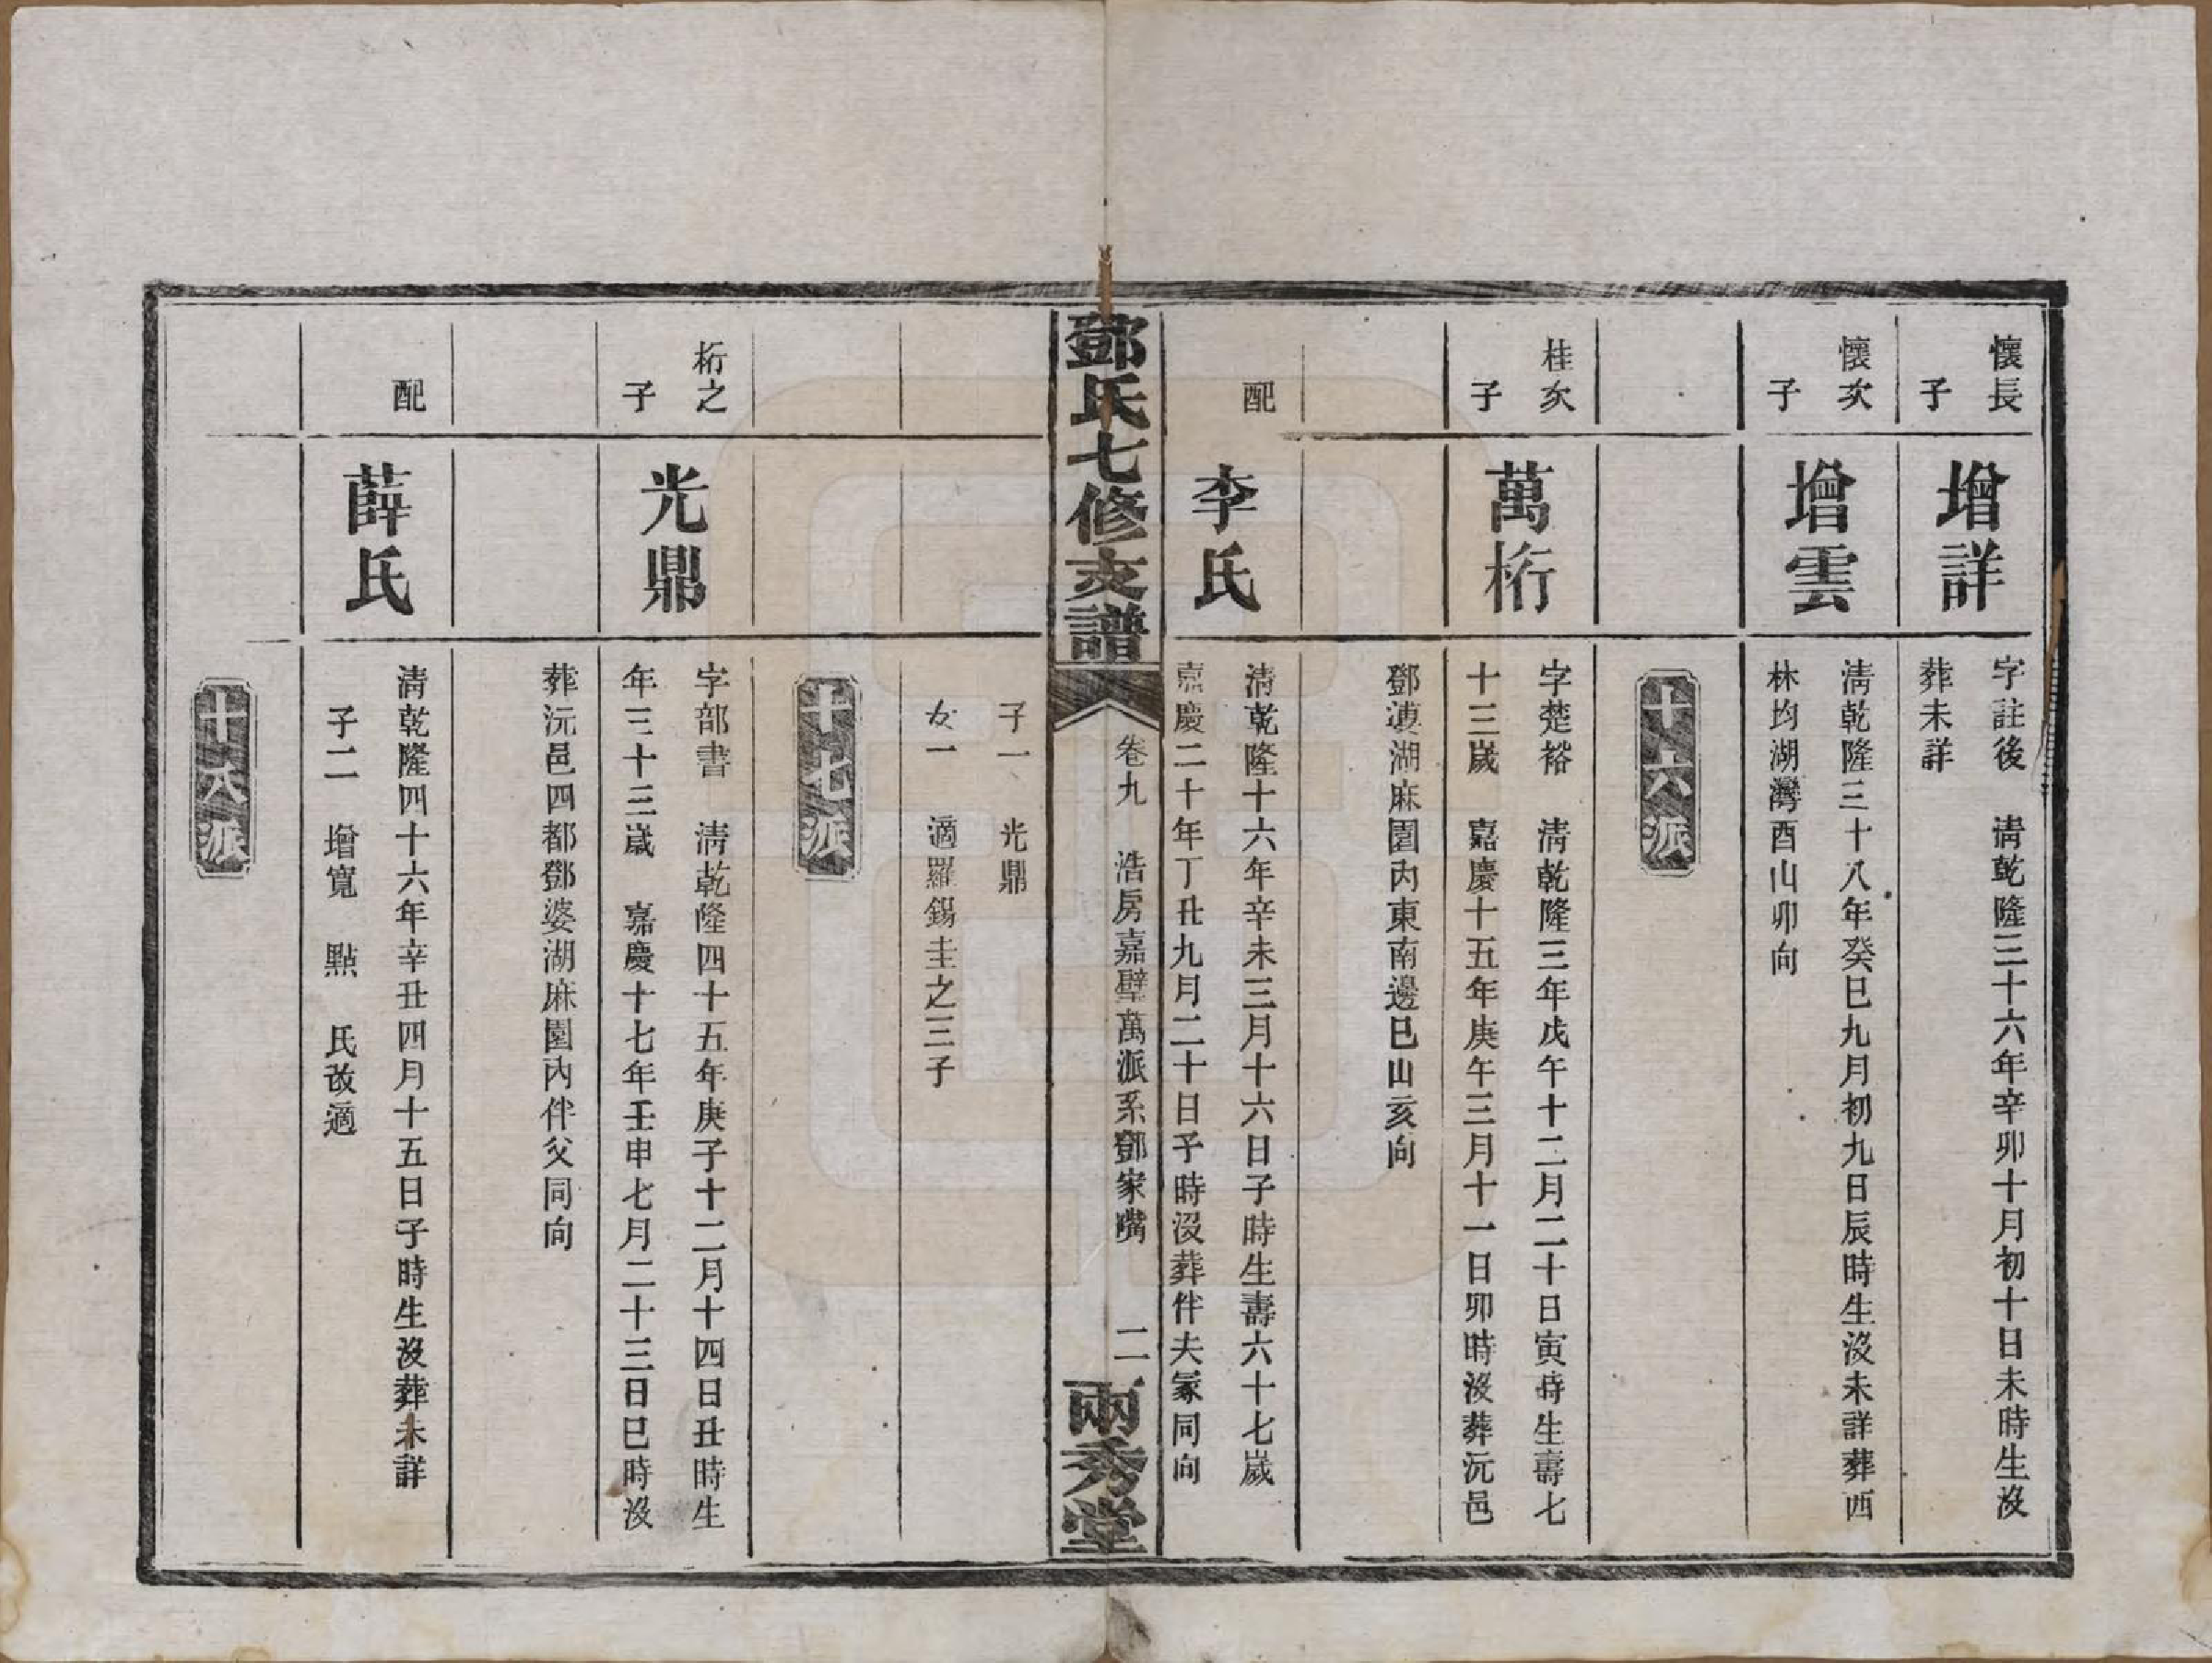 懷長
子
增詳
字註後　淸乾隆三十六年辛卯十月初十日未時生沒
葬未詳
懷次
子
增雲
淸乾隆三十八年癸巳九月初九日辰時生沒未詳葬西
林均湖灣酉山卯向
十六派
桂次
子
萬桁
字楚裕　淸乾隆三年戊午十二月二十日寅時生壽七
十三歲　嘉慶十五年庚午三月十一日卯時沒葬沅邑
鄧湖麻園內東南邊巳山亥向
配
李氏
淸乾隆十六年辛未三月十六日子時生壽六十七歲
嘉慶二十年丁丑九月二十日子時沒葬伴夫冢同向
鄧氏七修支譜
卷九　浩房嘉璧萬派系鄧家嘴　二
兩秀堂
子一　光鼎
女一　適羅錫圭之三子
十七派
桁之
子
光鼎
字部書　淸乾隆四十五年庚子十二月十四日丑時生
年三十三歲　嘉慶十七年壬申七月二十三日巳時沒
葬沅邑四都鄧婆湖麻園內伴父同向
配
薛氏
淸乾隆四十六年辛丑四月十五日子時生沒葬未詳
子二　增寬　點　氏改適
十八派